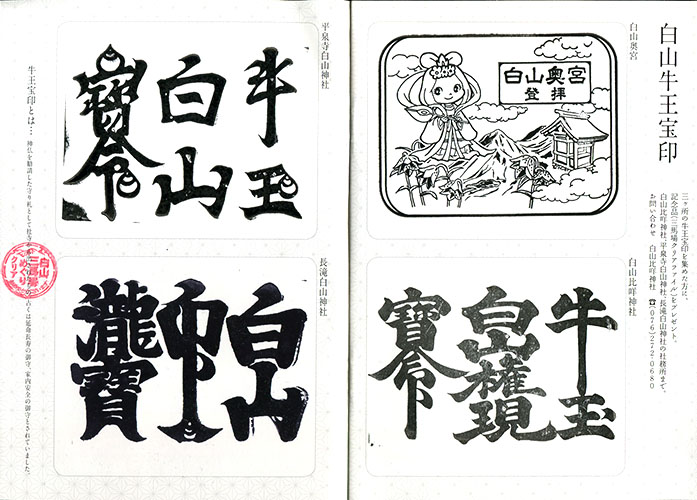 白山牛王宝印
三ヶ所の牛王宝印を集めた方に、
記念品(三馬場クリアファイル)をプレゼント。
白山比咩神社、平泉寺白山神社、長滝白山神社の社務所まで。
お問い合わせ 白山比咩神社 ☎(076)272-0680
白山奥宮
白山奥宮
登拝
白山比咩神社
牛玉
白山権現
寶命
平泉寺白山神社
牛王
白山
寶命
長滝白山神社
白山
瀧寶
牛王宝印とは…
神仏を勧請した守り札として
古くは延命長寿の御守、家内安全の御守とされていました。
白山
三馬場
めぐり
クリア